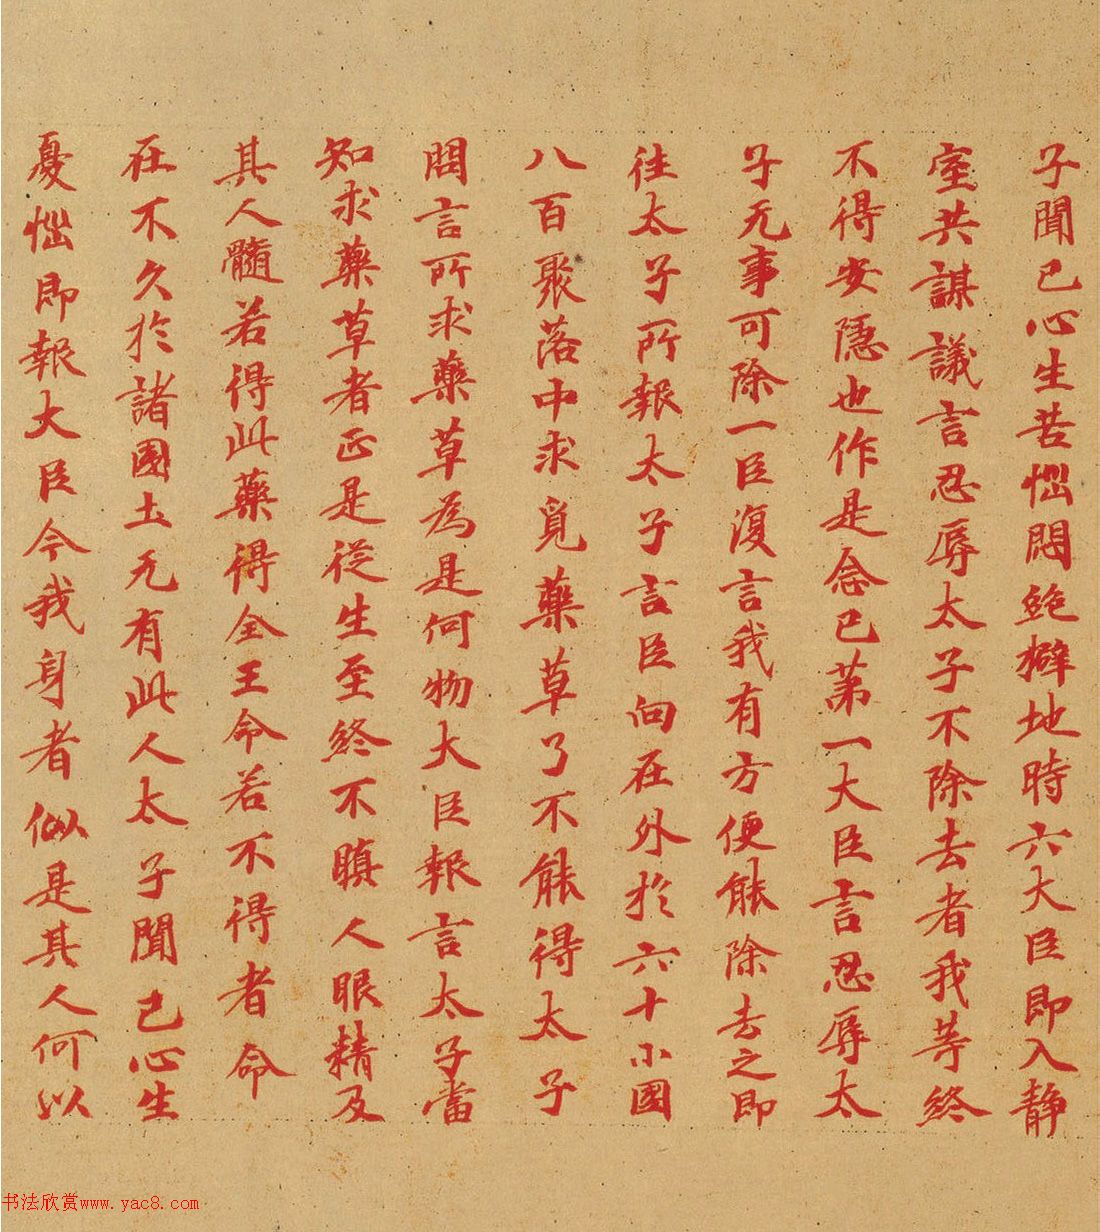 子聞已心生苦惱悶絕擗地時六大臣即入静
室共謀議言忍辱太子不除去者我等終
不得安隱也作是念已苐一大臣言忍辱太
子无事可除一臣復言我有方便能除去之即
往太子所報太子言臣向在外於六十小國
八百聚落中求覓藥草了不能得太子
問言所求藥草為是何物大臣報言太子當
知求藥草者正是從生至終不瞋人眼精及
其人髓若得此藥得全王命若不得者命
在不久於諸國土无有此人太子聞已心生
憂惱即報大臣今我身者似是其人何以
书法欣赏www.yac8.com